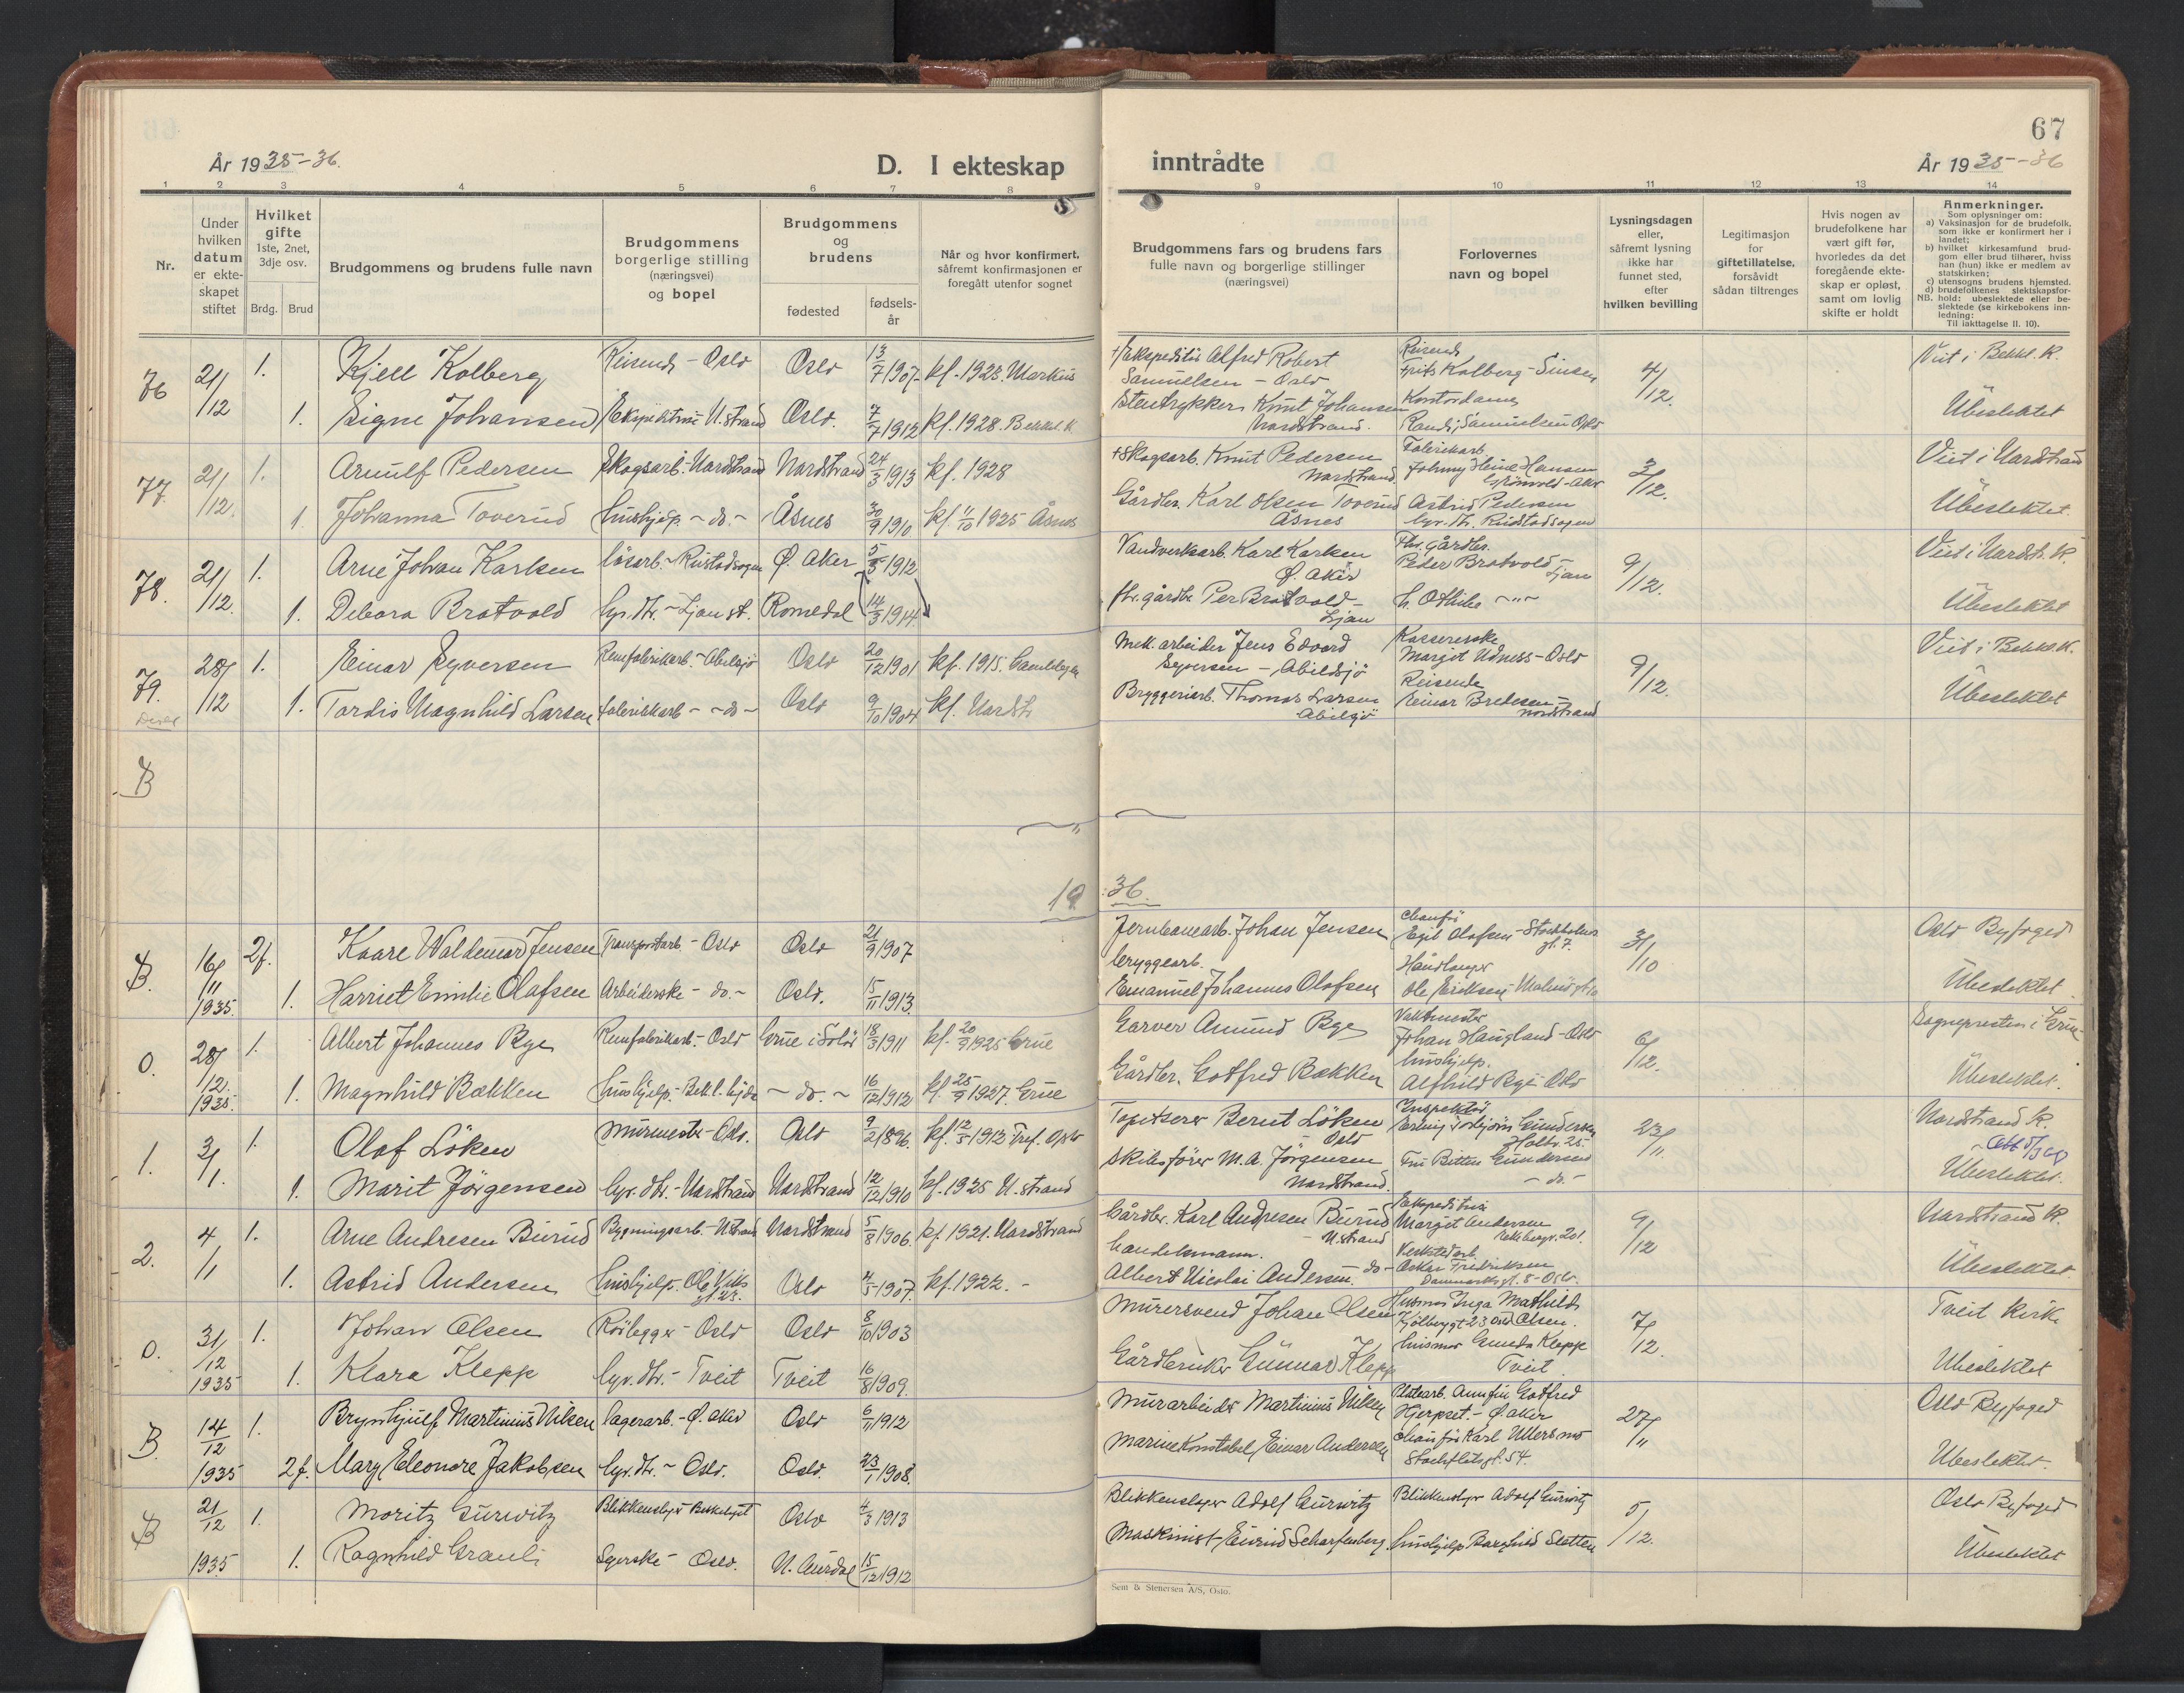 67
År 1935-36.
D. I ekteskap
inntrådte
År 1935-36
1 2 3 4 5 6 7 8 9 10 11 12 13 14
Nr.
Under hvilken datum er ekteskapet stiftet
Hvilket gifte 1ste, 2net, 3dje osv.
Brdg. Brud
Brudgommens og brudens fulle navn
Brudgommens borgerlige stilling (næringsvei) og bopel
Brudgommens og brudens
fødested
fødselsår
Når og hvor konfirmert, såfremt konfirmasjonen er foregått utenfor sognet
Brudgommens fars og brudens fars fulle navn og borgerlige stillinger (næringsvei)
Forlovernes navn og bopel
Lysningsdagen eller, såfremt lysning ikke har funnet sted, efter hvilken bevilling
Legitimasjon for giftetillatelse, forsåvidt sådan tiltrenges
Hvis nogen av brudefolkene har vært gift før, hvorledes da det foregående ekteskap er opløst, samt om lovlig skifte er holdt
Anmerkninger.
Som oplysninger om:
a) Vaksinasjon for de brudefolk, som ikke er konfirmert her i landet;
b) hvilket kirkesamfund brudgom eller brud tilhører, hviss han (hun) ikke er medlem av statskirken;
c) utensogns brudens hjemsted.
d) brudefolkenes slektskapsforhold: ubeslektede eller beslektede (se kirkebokens innledning:
NB.
Til iakttagelse II. 10).
76 21/12 1. Kjell Kolberg Reisende - Oslo Oslo 13/7 1907 kf. 1923. Markus + Ekspeditør Alfred Robert Samuelsen - Oslo Reisende Frits Kolberg - Sinsen 4/12. Viet i Bekkel. K.
1. Signe Johansen Ekspeditrise N.strand Oslo. 7/7 1912 kf. 1928. Bekkel. K Stentrykker Knut Johansen Nordstrand. Kontordame Randi Samuelsen Oslo Übeslektet
77. 21/12. 1. Arnulf Pedersen Skogsarb. - Nordstrand Nordstrand 24/3 1913 kf. 1928 + Skogsarb. Knut Pedersen Nordstrand. Fabrikarb. Johnny Heine Hansen - Aker 3/12. Viet i Nordstrand
1. Johanna Toverud Hushjelp. - do. - Åsnes 30/9 1910 kf. 11/10 1925 Åsnes Gårdbr. Karl Olsen Toverud Åsnes Astrid Pedersen Ubeslektet.
78. 21/12. 1. Arne Johan Karlsen løsarb. - Rustadsogen Ø. Aker 5/5 1912 Vandverksarb. Karl Karlsen Ø. Aker fhv. gårdbr. Peder Bratvold - Ljan 9/12. Viet i Nordstr. K.
1. Debora Bratvold - Ljan st. Romedal 14/3 1914 fhv. gårdbr. Per Bratvold - Ljan Übeslektet
79. 28/12 1. Einar Syversen Remfabrikarb. - Abilsjø Oslo 20/12 1901 kf. 1915. Gamlebyen Mek. arbeider Jens Edvard Syversen - Abildsjø Kassererske Margit Udness - Oslo 9/12. Viet i Bekkel. K.
1. Tordis Magnhild Larsen fabrikkarb - - do - Oslo 9/10 1904 kf. Nordstr. Bryggeriarb. Thomas Larsen Abilsjø Reisende Einar Bredesen - Nordstrand Übeslektet
B
19 36.
B. 16/11 1935. 2f. Kaare Waldemar Jensen Transportarb. - Oslo Oslo 21/9 1907 Jernbanearb. Johan Jensen Chauffør Egil Olafsen - Stockholms gt. 7. 31/10 Oslo Byfoged
1. Harriet Emilie Olafsen Arbeiderske - do. - Oslo. 15/11 1913. Bryggearb. Emanuel Johannes Olafsen Håndlanger Ole Eriksen - Ubeslektet.
O. 28/12. 1935. 1. Albert Johannes Bye Remfabrikarb. - Oslo Grue i Solør 18/3 1911 kf. 20/9 1925 Grue Garver Amund Bye Vaktmester Johan Haugland - Oslo 6/12. Sognepresten i Grue
1. Magnhild Bakken Hushjelp. - - do. - 16/12 1912 kf. 25/9 1927. Grue Gårdbr. Gotfred Bakken Hushjelp. Alfhild Bye Oslo Übeslektet.
1. 3/1. 1. Olaf Löken Murmester - Oslo. Oslo 9/2 1896. kf. 12/5 1912 Tref. Oslo Tapetserer Bernt Löken - Oslo Inspektør Erling Torbjörn Gundersen Holtv. 25. 23/11. Nordstrand K.
1. Marit Jörgensen - Nordstrand Nordstrand 12/12 1910 kf. 1925 N. strand Skibsfører M. A. Jörgensen Nordstrand. Fru Bitten Gundersen - do. - Übeslektet.
2. 4/1 1. Arne Andresen Burud Bygningsarb. - N.strand Nordstrand 5/8 1906. kf. 1921. Nordstrand Gårdbr. Karl Andresen Burud - N.strand Ekspeditrise Margit Andersen 9/12 Nordstrand K.
1. Astrid Andersen Hushjelp. Ole Viks gt. 23. Oslo 4/5 1907. kf. 1922. - Handelsmann. Albert Nicolai Andersen. do - Verkstedarb. Oskar Fredriksen Danmarksgt. 8 - Oslo. Übeslektet.
O. 31/12 1935 1. Johan Olsen Rørlegger - Oslo Oslo 8/10 1903 Murersvend Johan Olsen Husmor Inga Mathilde Olsen. 7/12. Tveit kirke
1. Klara Klepp - Tveit Tveit 16/8 1909. Gårdbruker Gunnar Klepp Husmor Gunda Klepp Tveit Ubeslektet
B. 14/12 1935 1. Brynhjulf Martinius Nilsen Lagerarb. - Ø. Aker Oslo 6/11 1912 Murarbeider Martinius Nilsen Platearb. Arnfin Gotfred Hjerpset. - Ø. Aker 27/11 Oslo Byfoged
2f. Mary Eleonore Jakobsen - Oslo. Oslo. 23/1 1908. Marinekonstabel Einar Andersen Chauffør Karl Ullersmo gt. 54. Ubeslektet.
B 21/12 1935 1. Moritz Gurwitz Blikkenslager Oslo 4/3 1913 Blikkenslager Adolf Gurwitz Blikkenslager Adolf Gurwitz 5/12. Oslo Byfoged
1. Ragnhild Grauli Syerske - Oslo. N. Aurdal 15/12 1912 Maskinist Scharfenberg. Hushjelp Sletten Übeslektet
Sem & Stenersen A/S, Oslo.